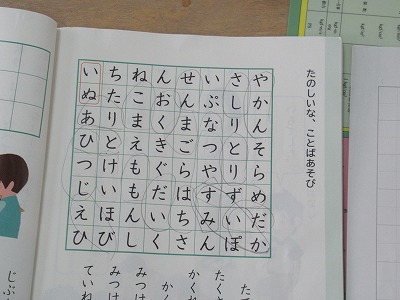 たのしいな、ことばあそび
やかんそらめだか
さしりとりずいぽ
いぷなつやすみん
せんまごらはちさ
んおくきぐだいく
ねこまえももんし
ちたりとけいほび
いぬあひつじえひ
たくさ
かくれ
かく
みつけ
みつけ
ていね
じぶ